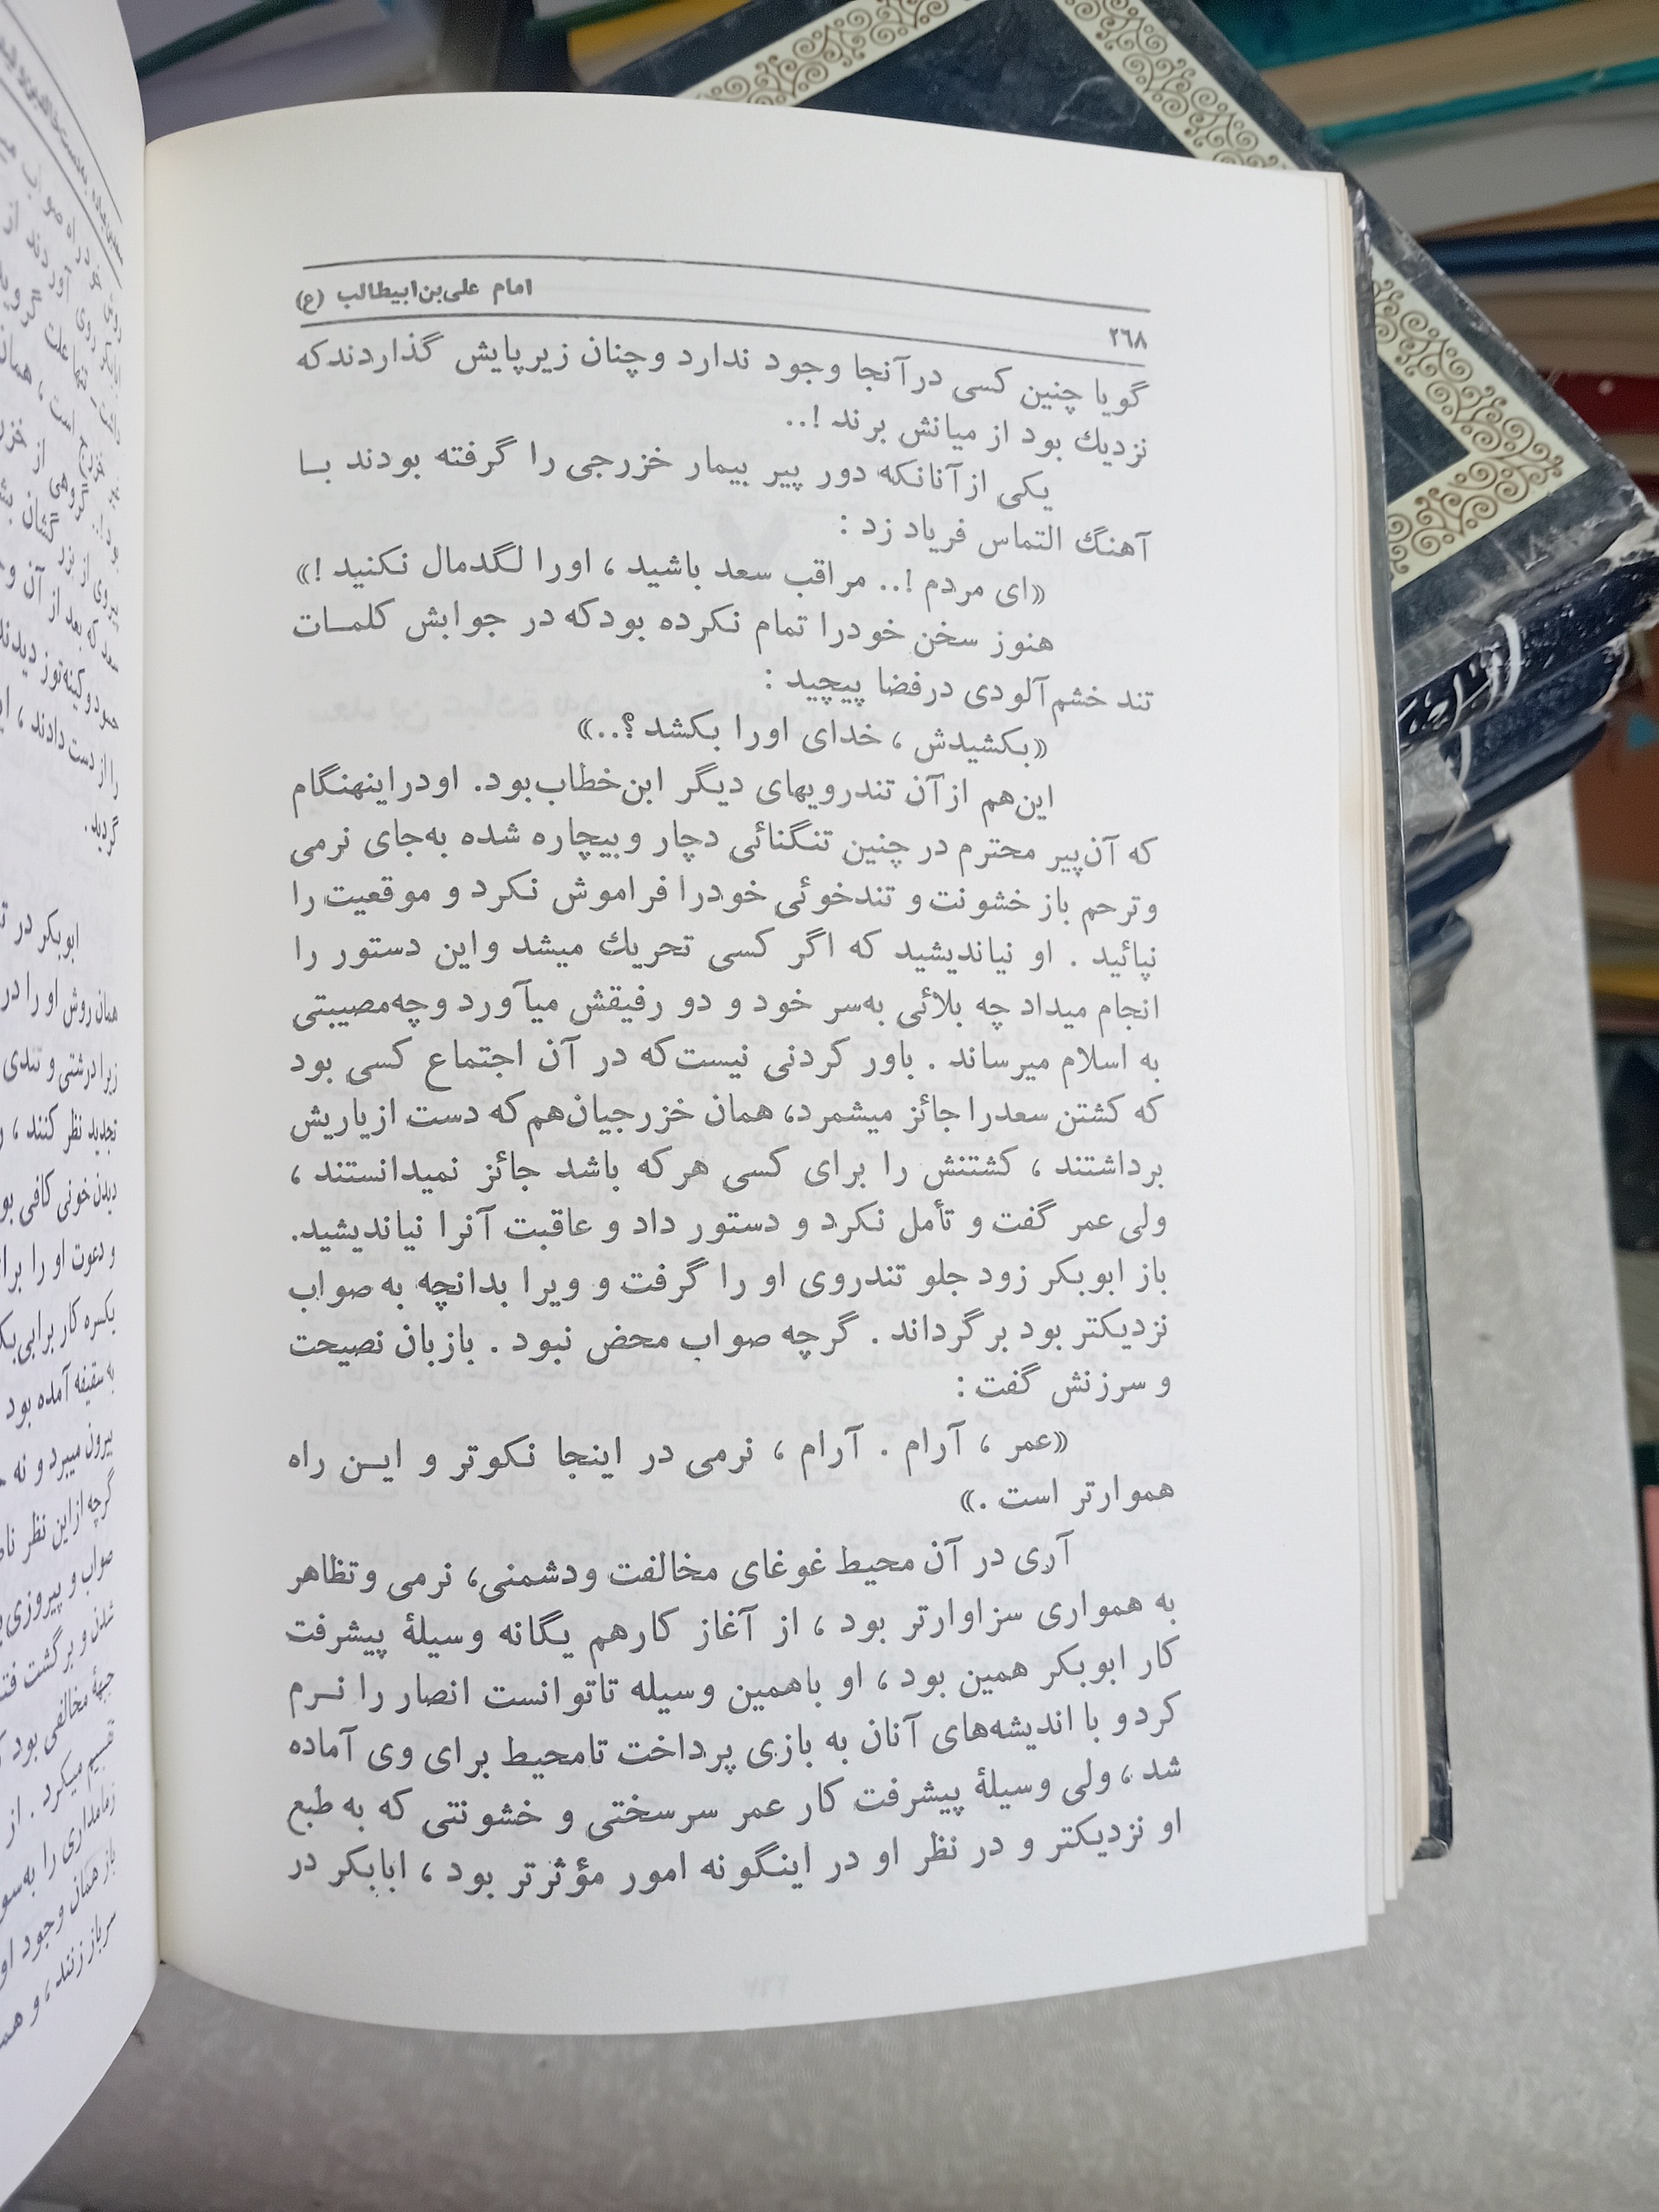 امام علی‌بن‌ابیطالب (ع)
۲۶۸
گویا چنین کسی درآنجا وجود ندارد وچنان زیرپایش گذاردندکه
نزدیك بود از میانش برند !..
یکی ازآنانکه دور پیر بیمار خزرجی را گرفته بودند بـا
آهنگ التماس فریاد زد :
«ای مردم !.. مراقب سعد باشید ، اورا لگدمال نکنید !»
هنوز سخن خودرا تمام نکرده بودکه در جوابش کلمـات
تند خشم‌آلودی درفضا پیچید :
«بکشیدش ، خدای اورا بکشد ؟..»
این‌هم ازآن تندرویهای دیگر ابن‌خطاب‌بود. اودراینهنگام
که آن‌پیر محترم در چنین تنگنائی دچار وبیچاره شده به‌جای نرمی
وترحم باز خشونت و تندخوئی خودرا فراموش نکرد و موقعیت را
نپائید . او نیاندیشید که اگر کسی تحریك میشد واین دستور را
انجام میداد چه بلائی به‌سر خود و دو رفیقش میآورد وچه‌مصیبتی
به اسلام میرساند . باور کردنی نیست‌که در آن اجتماع کسی بود
که کشتن سعدرا جائز میشمرد، همان خزرجیان‌هم‌که دست ازیاریش
برداشتند ، کشتنش را برای کسی هرکه باشد جائز نمیدانستند ،
ولی عمر گفت و تأمل نکرد و دستور داد و عاقبت آنرا نیاندیشید.
باز ابوبکر زود جلو تندروی او را گرفت و ویرا بدانچه به صواب
نزدیکتر بود برگرداند . گرچه صواب محض نبود . بازبان نصیحت
و سرزنش گفت :
«عمر ، آرام . آرام ، نرمی در اینجا نکوتر و ایـن راه
هموارتر است .»
آری در آن محیط غوغای مخالفت ودشمنی، نرمی وتظاهر
به همواری سزاوارتر بود ، از آغاز کارهم یگانه وسیلهٔ پیشرفت
کار ابوبکر همین بود ، او باهمین وسیله تاتوانست انصار را نـرم
کرد و با اندیشه‌های آنان به بازی پرداخت تامحیط برای وی آماده
شد ، ولی وسیلهٔ پیشرفت کار عمر سرسختی و خشونتی که به طبع
او نزدیکتر و در نظر او در اینگونه امور مؤثرتر بود ، ابابکر در
گردید .
ابوبکر در
همان روش او را در
زیرا درشتی و تندی
تجدید نظر کنند ،
دیدن خونی کافی
و دعوت او را
یکسره کار برابی
به سقیفه آمده بود
بیرون میبرد و نه
گرچه ازاین نظر
صواب و پیروزی
شدن و برگشت
جبههٔ مخالفی بود
تقسیم میکرد . از
زمامداری را
باز همان وجود
سرباز زنند ، و